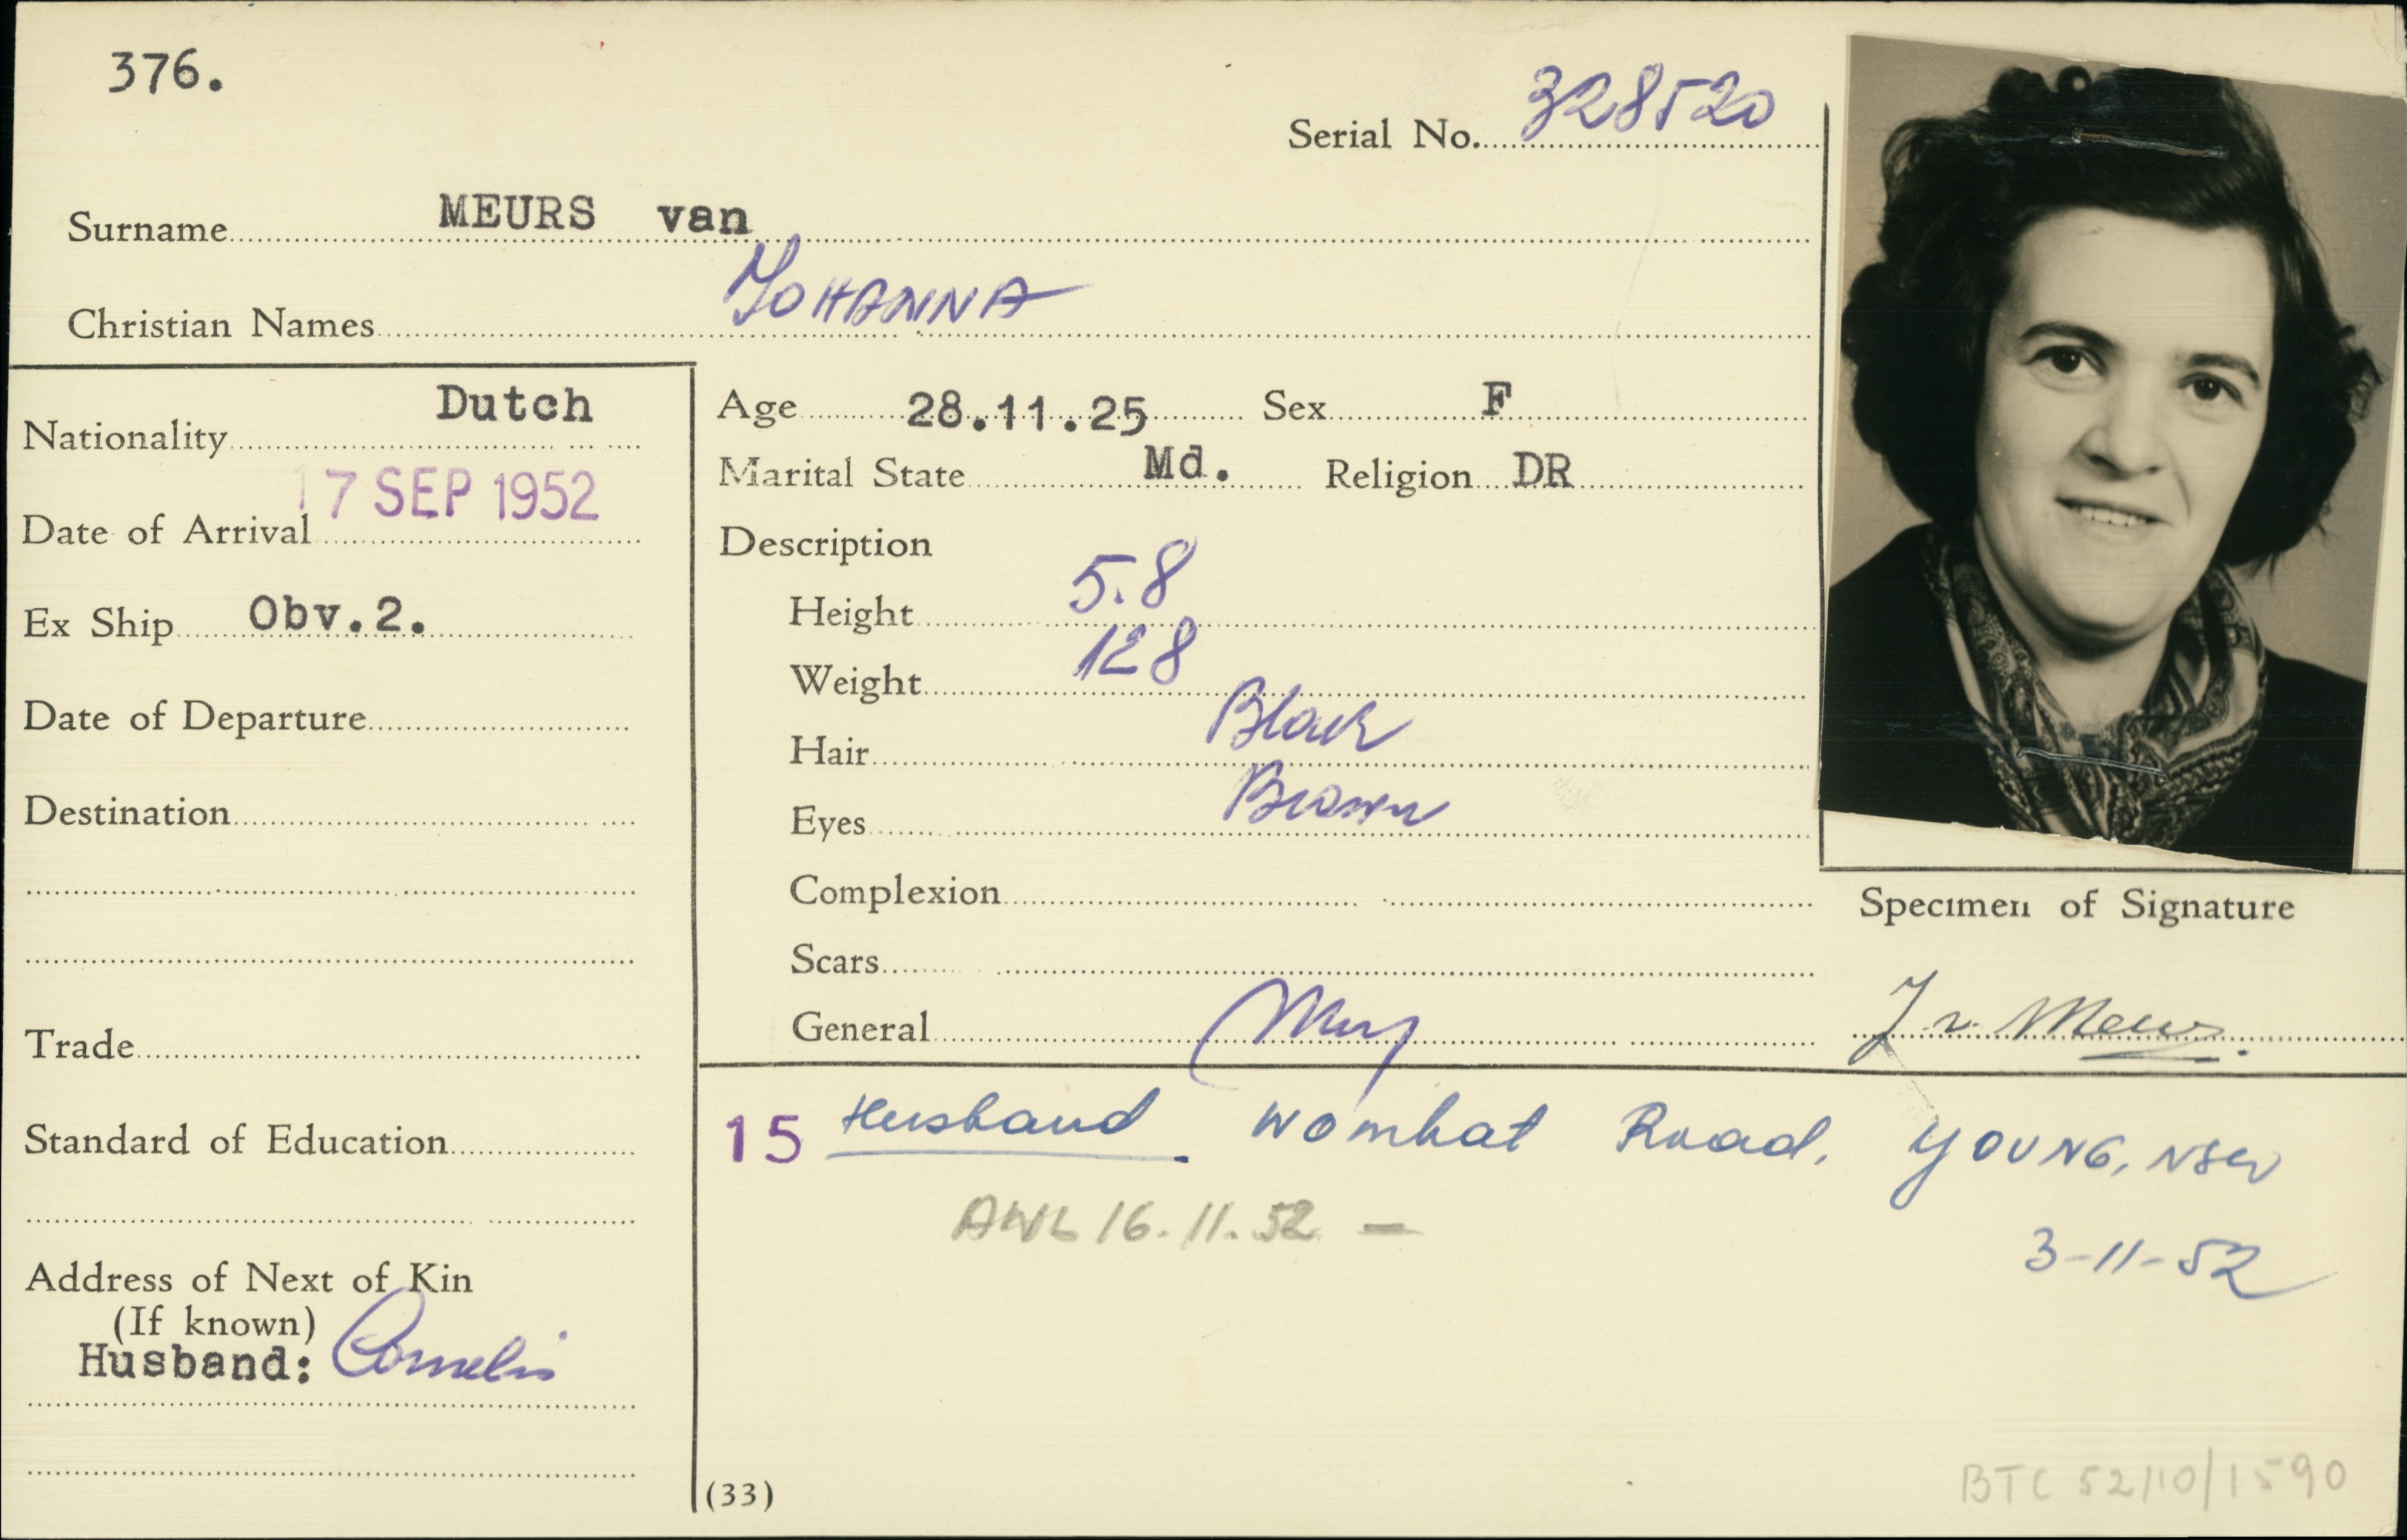 376.
Serial No. 328520
Surname MEURS van
Christian Names JOHANNA
Nationality Dutch
Date of Arrival 17 SEP 1952
Ex Ship Obv.2.
Date of Departure
Destination
Trade
Standard of Education
Address of Next of Kin
(If known)
Husband: Cornelis
Age 28.11.25 Sex F
Marital State Md. Religion DR
Description
Height 5.8
Weight 128
Hair Black
Eyes Brown
Complexion
Scars
General
Specimen of Signature
J v. Meurs.
15 Husband. Wombat Road, YOUNG, NSW
3-11-52
AWL 16.11.52 —
(33)
BTC 52/10/1590